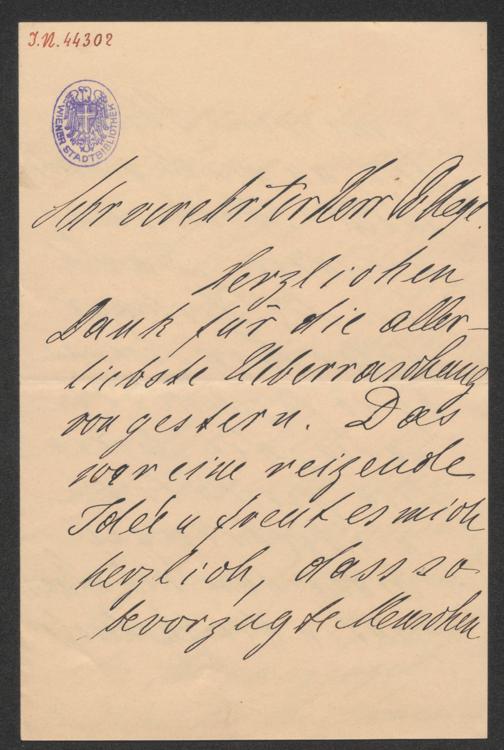 J.N. 44302
WIENER STADTBIBLIOTHEK
Sehr verehrter Herr College.
Herzlichen
Dank für die aller-
liebste Ueberraschung
von gestern. Das
war eine reizende
Idée u freut es mich
herzlich, dass so
bevorzugte Menschen